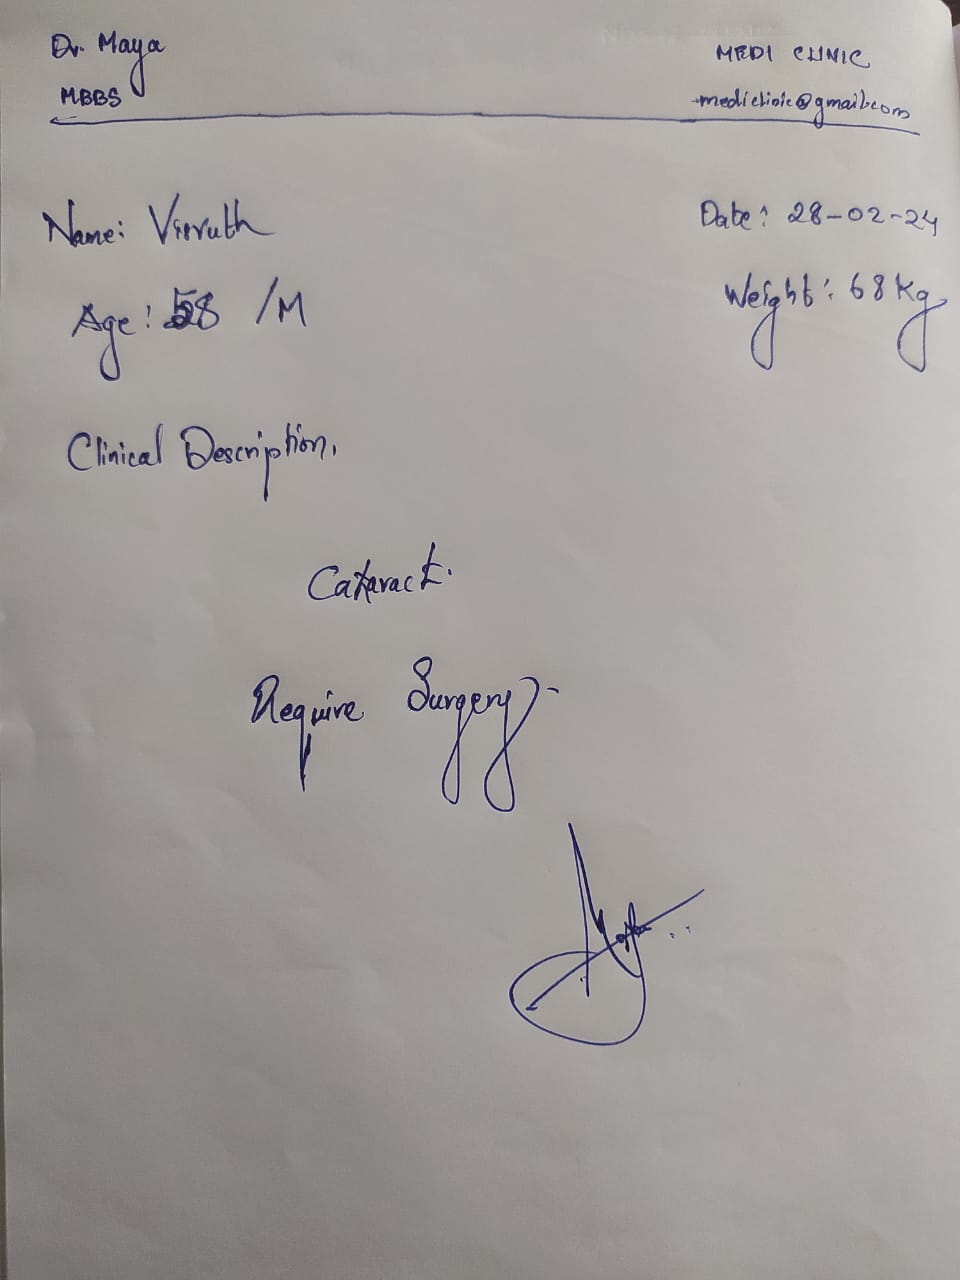 Dr. Maya
MBBS
MEDI CLINIC
mediclinic@gmail.com
Name: Visruth
Date: 28-02-24
Age: 58 /M
Weight: 68 Kg
Clinical Description.
Cataract.
Require Surgery-